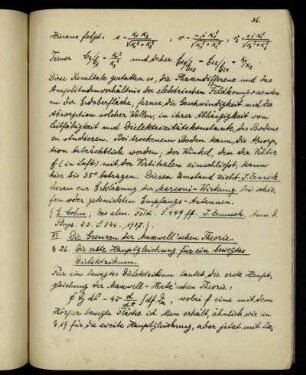 36.
Hieraus folgt:
Ferner und daher
Diese Resultate gestatten es, die Phasendifferenz und das
Amplitudenverhältnis der elektrischen Feldkomponenten
an der Erdoberfläche, ferner die Geschwindigkeit und die
Absorption solcher Wellen, in ihrer Abhängigkeit von
Leitfähigkeit und Dielektrizitätskonstante des Bodens
zu studieren. Bei trockenem Boden kann die Absorp-
tion beträchtlich werden. Der Winkel, den der Vektor
f (in Luft) mit der Vertikalen einschließt, kann
hier bis 35° betragen. Diesen Umstand zieht J. Zenneck
heran zur Erklärung der Marconi-Wirkung bei schie-
fen oder geknickten Empfangs-Antennen.
(E. Cohn, Das elm. Feld. S. 449 ff. J. Zenneck, Ann. d.
Phys. 23. S. 846. 1907.)
VI. Die Grenzen der Maxwell'schen Theorie
§ 26. Die erste Hauptgleichung für ein bewegtes
Dielektrikum.
Für ein bewegtes Dielektrikum lautet die erste Haupt-
gleichung der Maxwell-Hertz'schen Theorie:
wobei f eine mit dem
Körper bewegte Fläche ist. Man erhält, ähnlich wie in
§ 19 für die zweite Hauptgleichung, aber jetzt mit Be-